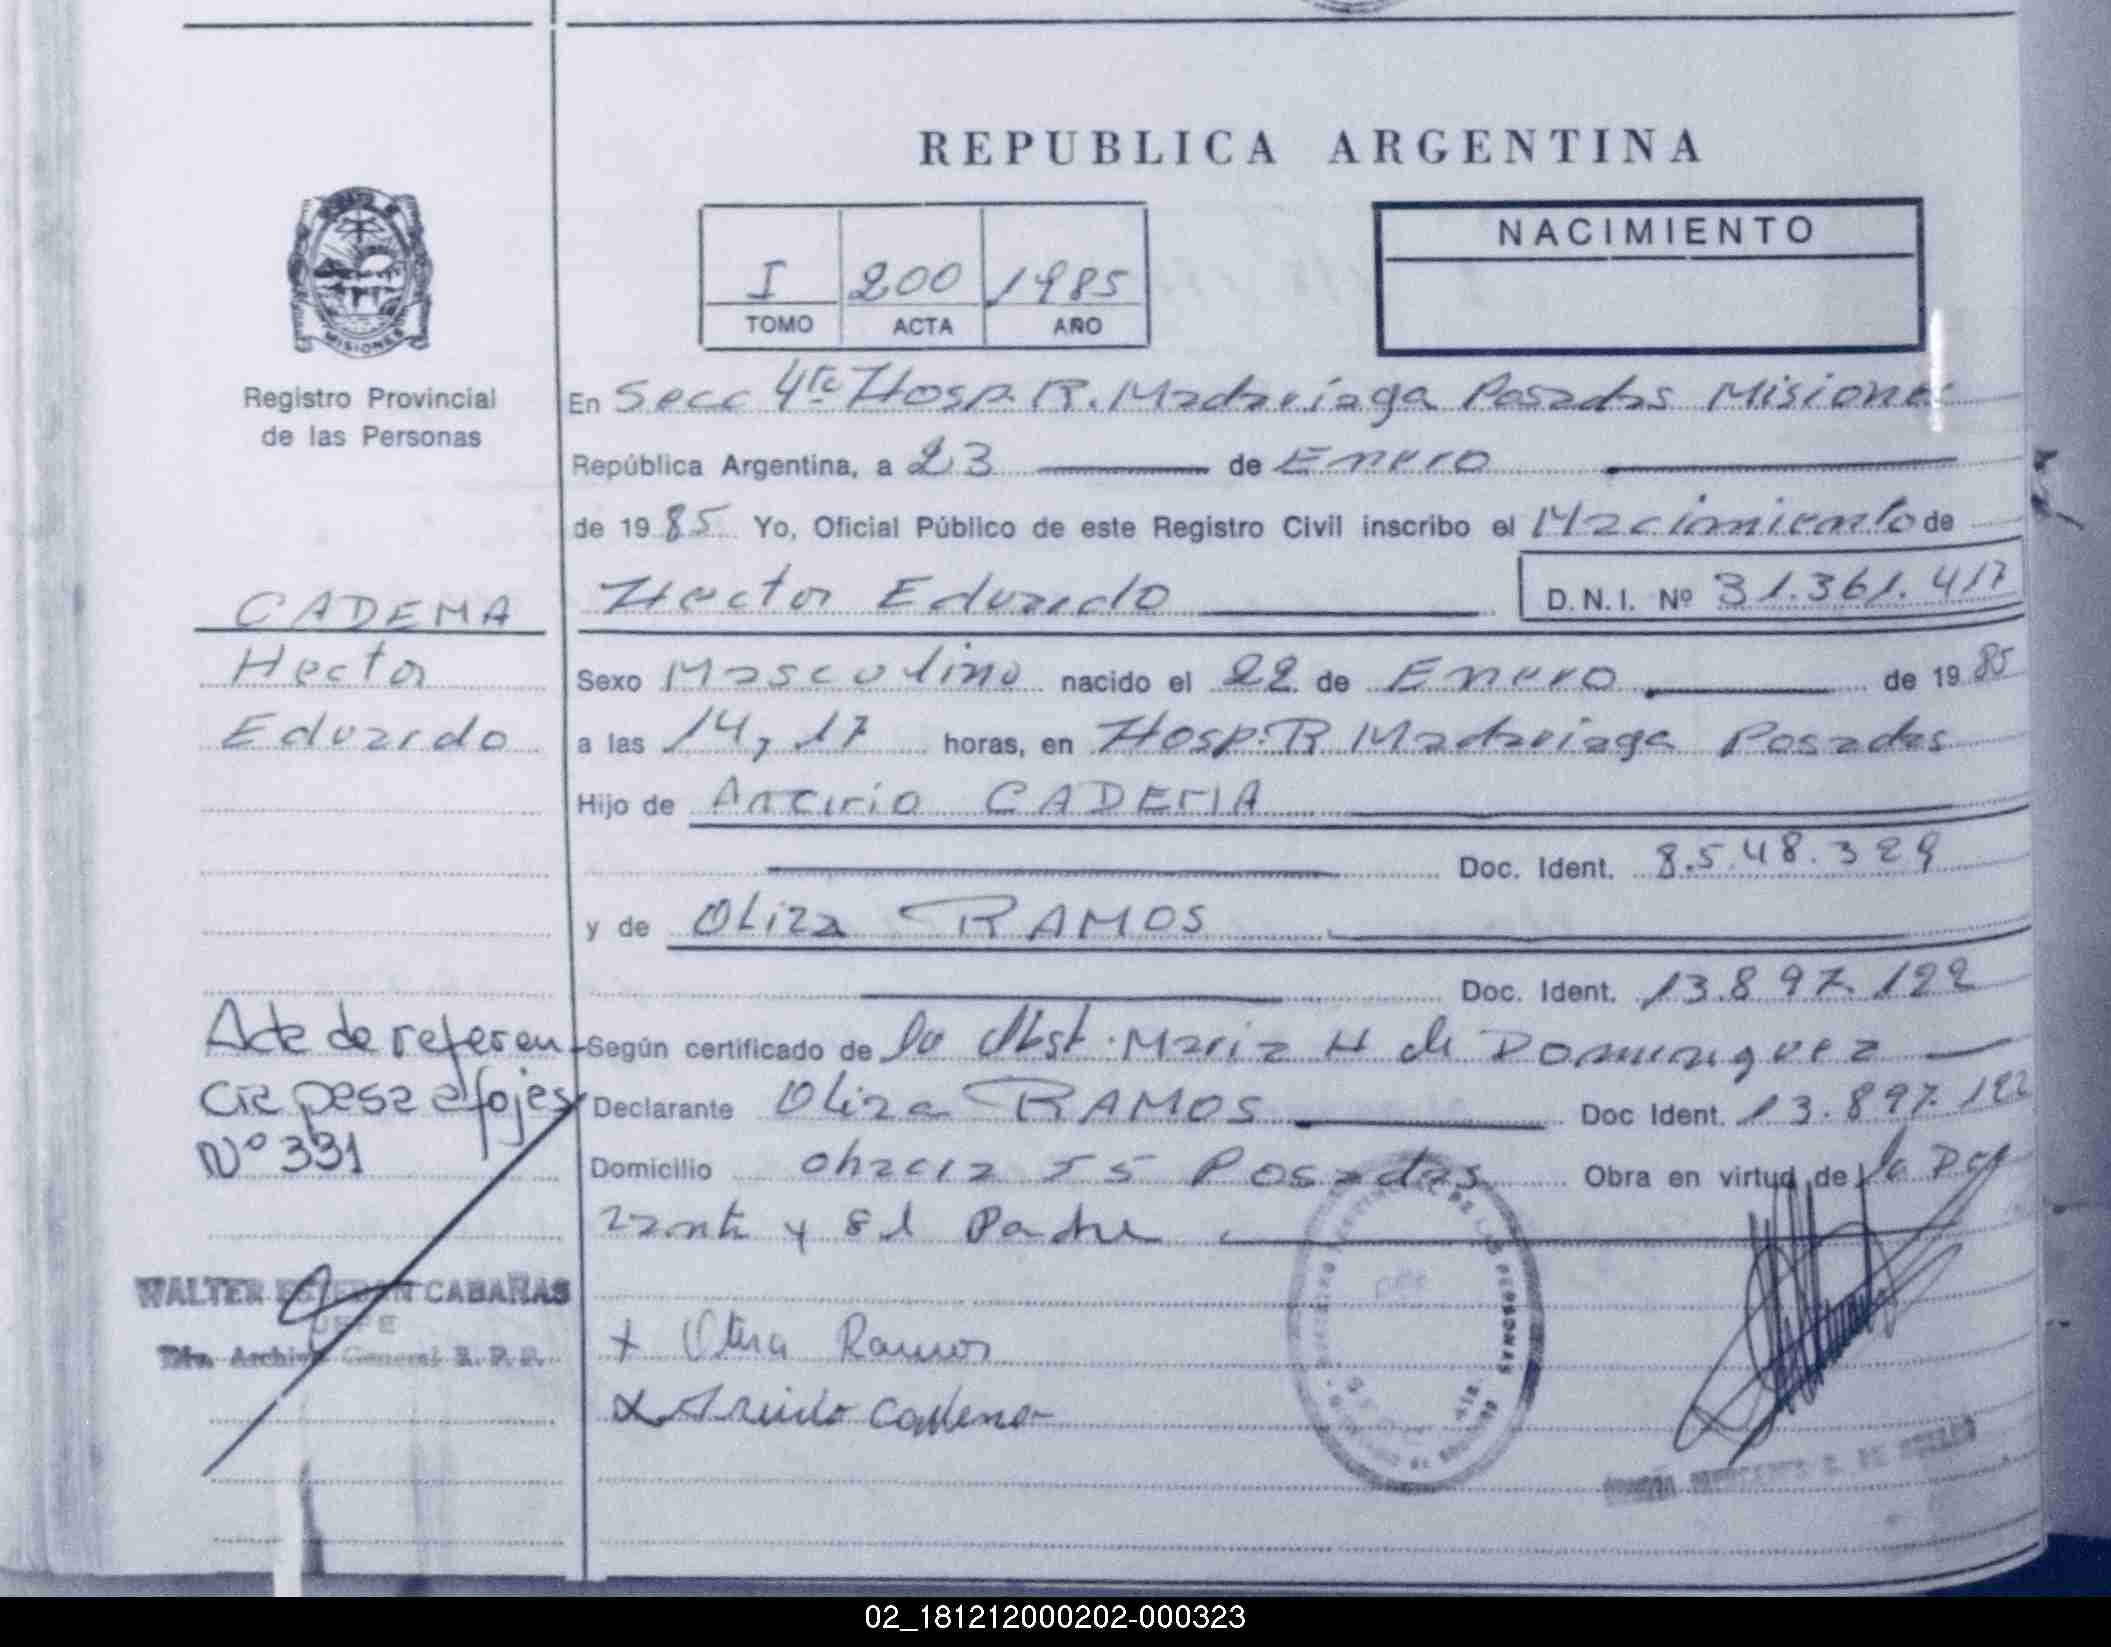 REPUBLICA ARGENTINA
MISIONES
Registro Provincial
de las Personas
I 200 1985
TOMO ACTA AÑO
NACIMIENTO
En Secc 4ta Hosp. R. Madariaga Posadas Misiones
República Argentina, a 23 de Enero
de 1985 Yo, Oficial Público de este Registro Civil inscribo el Nacimiento de
Hector Eduardo D.N.I. Nº 31.361.417
CADEMA
Hector
Eduardo
Sexo Masculino nacido el 22 de Enero de 1985
a las 14,17 horas, en Hosp. R Madariaga Posadas
Hijo de CADEMA
Doc. Ident. 8.548.329
y de Oliza RAMOS
Doc. Ident. 13.897.122
Según certificado de la Obst. Maria H de Dominguez
Declarante Oliza RAMOS Doc Ident. 13.897.122
Domicilio Posadas Obra en virtud de la Decl
arante y el Padre
Acta de referen
cia pasa a fojas
Nº 331
WALTER ESTEBAN CABAÑAS
JEFE
Div. Archivo General R. P. P.
+ Ramos
x Cadema
REGISTRO PROVINCIAL DE LAS PERSONAS
02_181212000202-000323